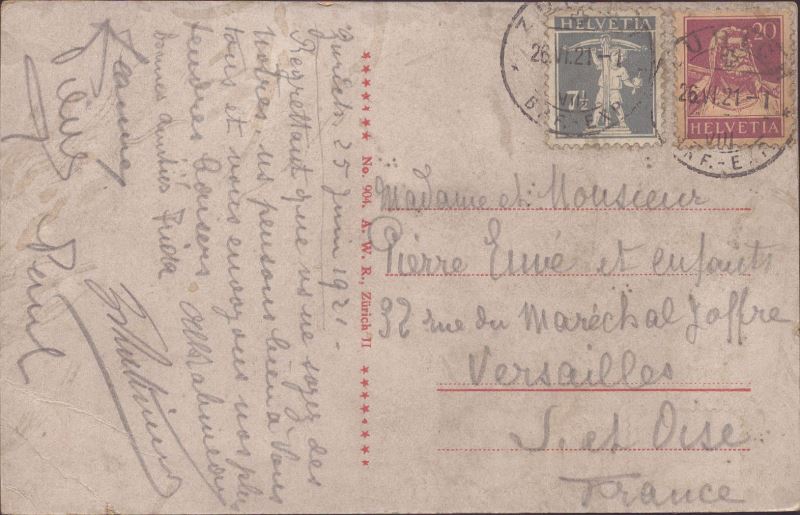 Zurich, 25 Juin 1921.
Regrettant que ns ne soyez des
nôtres, ns pensons bien à Vous
tous et vous envoyons nos plus
tendres baisers
bonnes amitiés
Jeanne
Paul
No. 904. A. W. R., Zürich II
HELVETIA
7½
20
HELVETIA
26.VI.21.-1
BRF.-EXP.
26.VI.21.-1
VIII
BRF.-EXP.
Madame et Monsieur
Pierre Euvé et enfants
32 rue du Maréchal Joffre
Versailles
S. et Oise
France